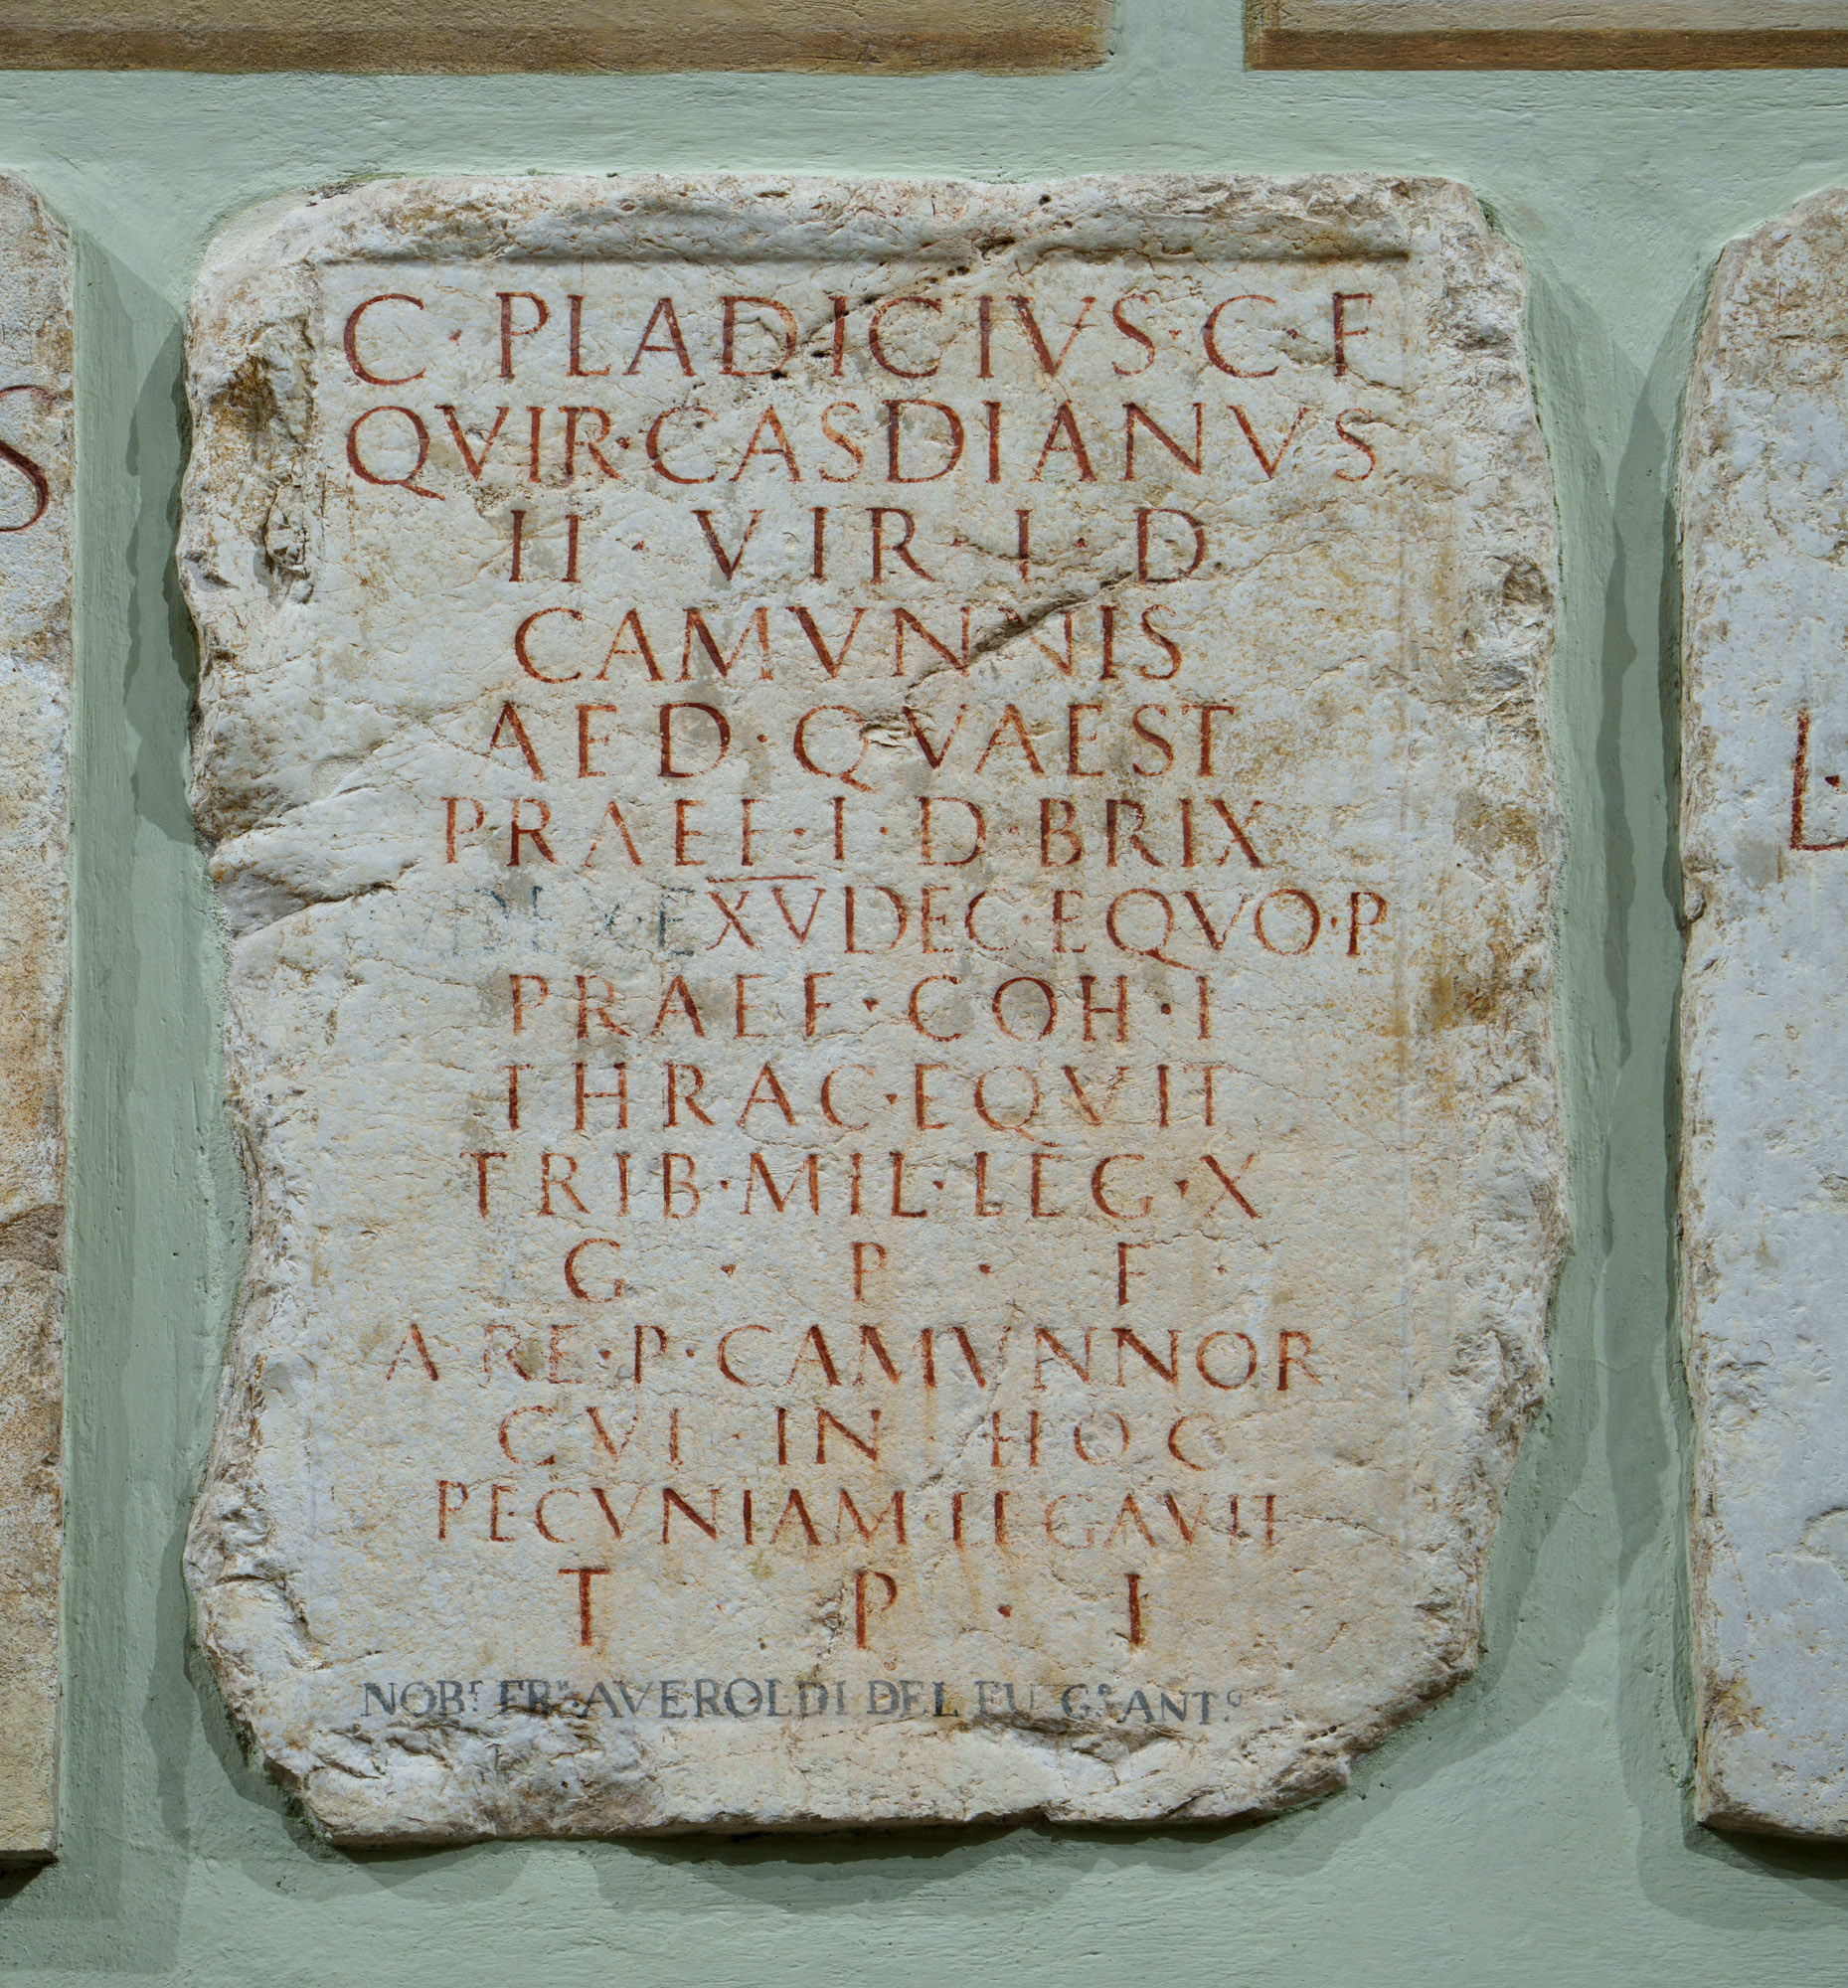 C · PLADICIVS · C · F
QVIR · CASDIANVS
II · VIR · I · D
CAMVNNIS
AED · QVAEST
PRAEF · I · D · BRIX
XVDEC · EQVO · P
PRAEF · COH · I
THRAC · EQVIT
TRIB · MIL · LEG · X
G · P · F ·
A RE · P · CAMVNNOR
CVI · IN · HOC
PECVNIAM · LEGAVIT
T P · I
AVEROLDI DEL ANT.º
L ·
S